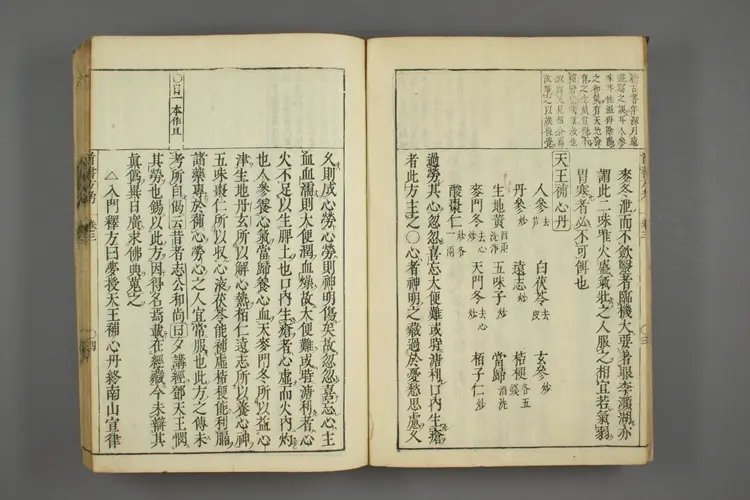 麥冬泄而不歛醫者臨機大要著眼李瀕湖亦
謂此二味唯火盛氣壯之人服之相宜若氣弱
胃寒者必不可餌也
天王補心丹
人參去芦 白茯苓去皮 玄參炒
丹參炒 遠志炒 桔梗各五錢
生地黃四兩洗淨 五味子炒 當歸酒洗
麥門冬去心炒 天門冬去心炒 栢子仁炒
酸棗仁炒各一兩
過勞其心忽忽喜忘大便難或時溏利口內生瘡
者此方主之○心者神明之臟過於憂愁思慮久
久則成心勞心勞則神明傷矣故忽忽喜忘心主
血血濡則大便潤血燥故大便難或時溏利者心
火不足以生脾土也口內生瘡者心虛而火內灼
也人參養心氣當歸養心血天麥門冬所以益心
津生地丹玄所以解心熱栢仁遠志所以養心神
五味棗仁所以收心液茯苓能補虛桔梗能利膈
諸藥專於補心勞心之人宜常服也此方之傳未
考所自偈云昔者志公和尚日夕講經鄧天王憫
其勞也錫以此方因得名焉載在經藏今未辯其
真僞異日廣求佛典蒐之
△入門釋方曰夢授天王補心丹終南山宣律
○日一本作且
卷三